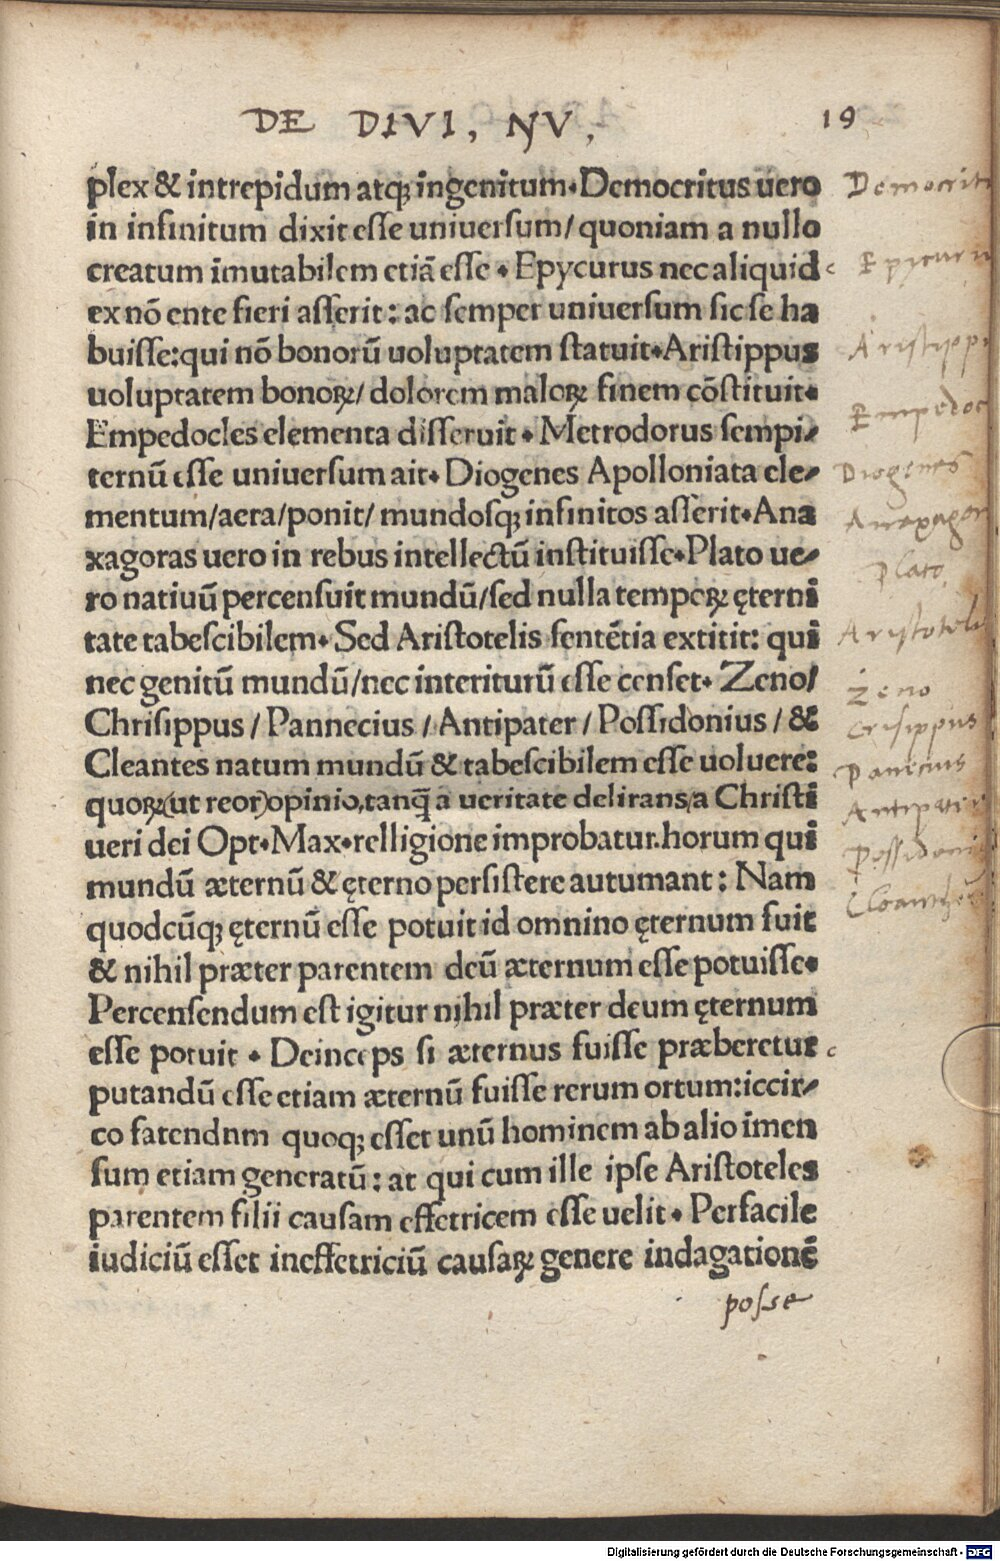 DE DIVI, NV,
19
plex & intrepidum atqꝫ ingenitum. Democritus uero
in infinitum dixit esse uniuersum/ quoniam a nullo
creatum īmutabilem etiā esse. Epycurus nec aliquid
ex nō ente fieri asserit: ac semper uniuersum sic se ha
buisse: qui nō bonorū uoluptatem statuit. Aristippus
uoluptatem bonoꝝ/ dolorem maloꝝ finem cōstituit.
Empedocles elementa disseruit. Metrodorus sempi-
ternū esse uniuersum ait. Diogenes Apolloniata ele-
mentum/aera/ponit/ mundosqꝫ infinitos asserit. Ana
xagoras uero in rebus intellectū instituisse. Plato ue-
ro natiuū percensuit mundū/sed nulla tempoꝝ ęterni
tate tabescibilem. Sed Aristotelis sentētia extitit: qui
nec genitū mundū/nec interiturū esse censet. Zeno/
Chrisippus / Pannecius / Antipater / Possidonius / &
Cleantes natum mundū & tabescibilem esse uoluere:
quoꝝ(ut reor)opinio,tanq̄ a ueritate delirans,a Christi
ueri dei Opt. Max. relligione improbatur. horum qui
mundū æternū & ęterno persistere autumant: Nam
quodcūqꝫ ęternū esse potuit id omnino ęternum fuit
& nihil præter parentem deū æternum esse potuisse.
Percensendum est igitur nihil præter deum ęternum
esse potuit. Deinceps si æternus fuisse præberetur
putandū esse etiam æternū fuisse rerum ortum: iccir-
co fatendnm quoqꝫ esset unū hominem ab alio īmen
sum etiam generatū: at qui cum ille ipse Aristoteles
parentem filii causam effetricem esse uelit. Perfacile
iudiciū esset ineffetriciū causaꝝ genere indagationē
posse
Democrit
Epycuru
Aristippu
Empedoc
Diogenes
Anaxagor
Plato
Aristotele
Zeno
Crisippus
Panecius
Antipater
Possidoni
Digitalisierung gefördert durch die Deutsche Forschungsgemeinschaft - DFG